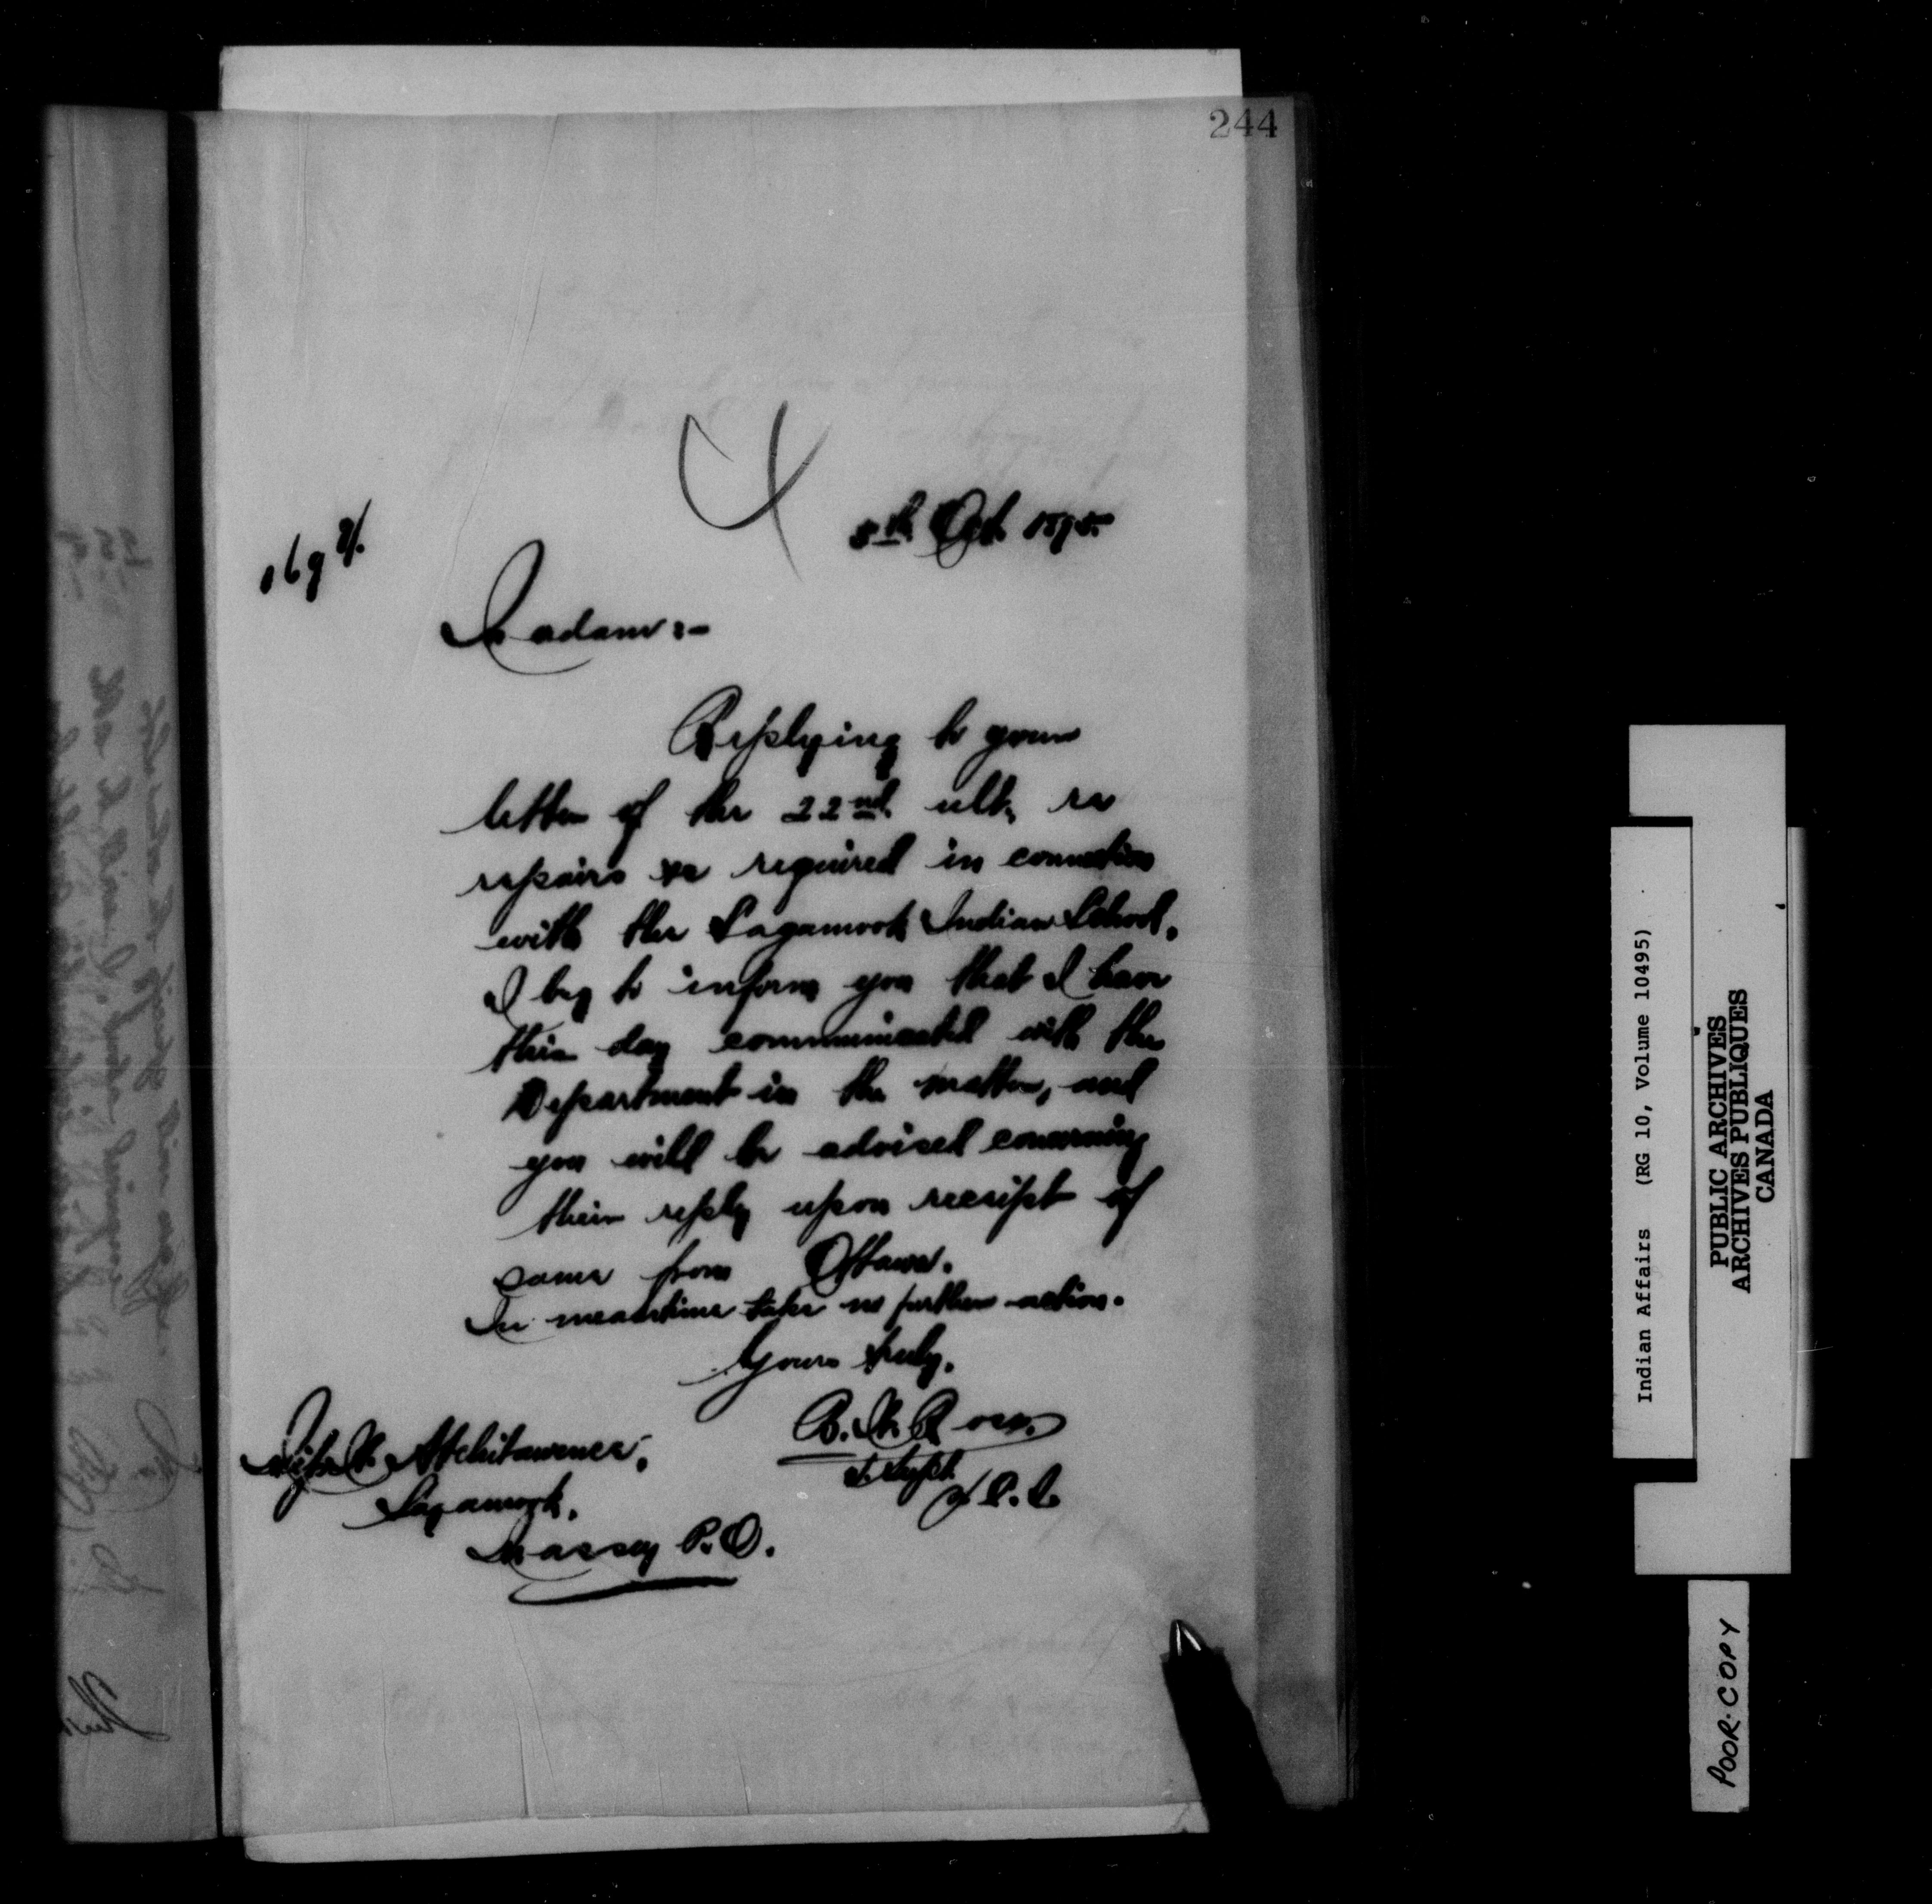 244
4
8th Oct. 1895.
Madam:-
Replying to your
letter of the 22nd ult, re
repairs &c required in connection
with the Sagamook Indian School,
I beg to inform you that I have
this day communicated with the
Department in the matter, and
you will be advised concerning
their reply upon receipt of
same from Ottawa.
In meantime take no further action.
Yours truly,
B. W. Ross.
I. Supt.
Atchitawence,
Sagamook,
Massey P.O.
Indian Affairs (RG 10, Volume 10495)
PUBLIC ARCHIVES
ARCHIVES PUBLIQUES
CANADA
POOR COPY